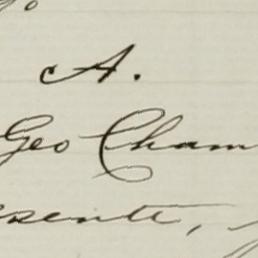 A.
Geo Cham
esente,